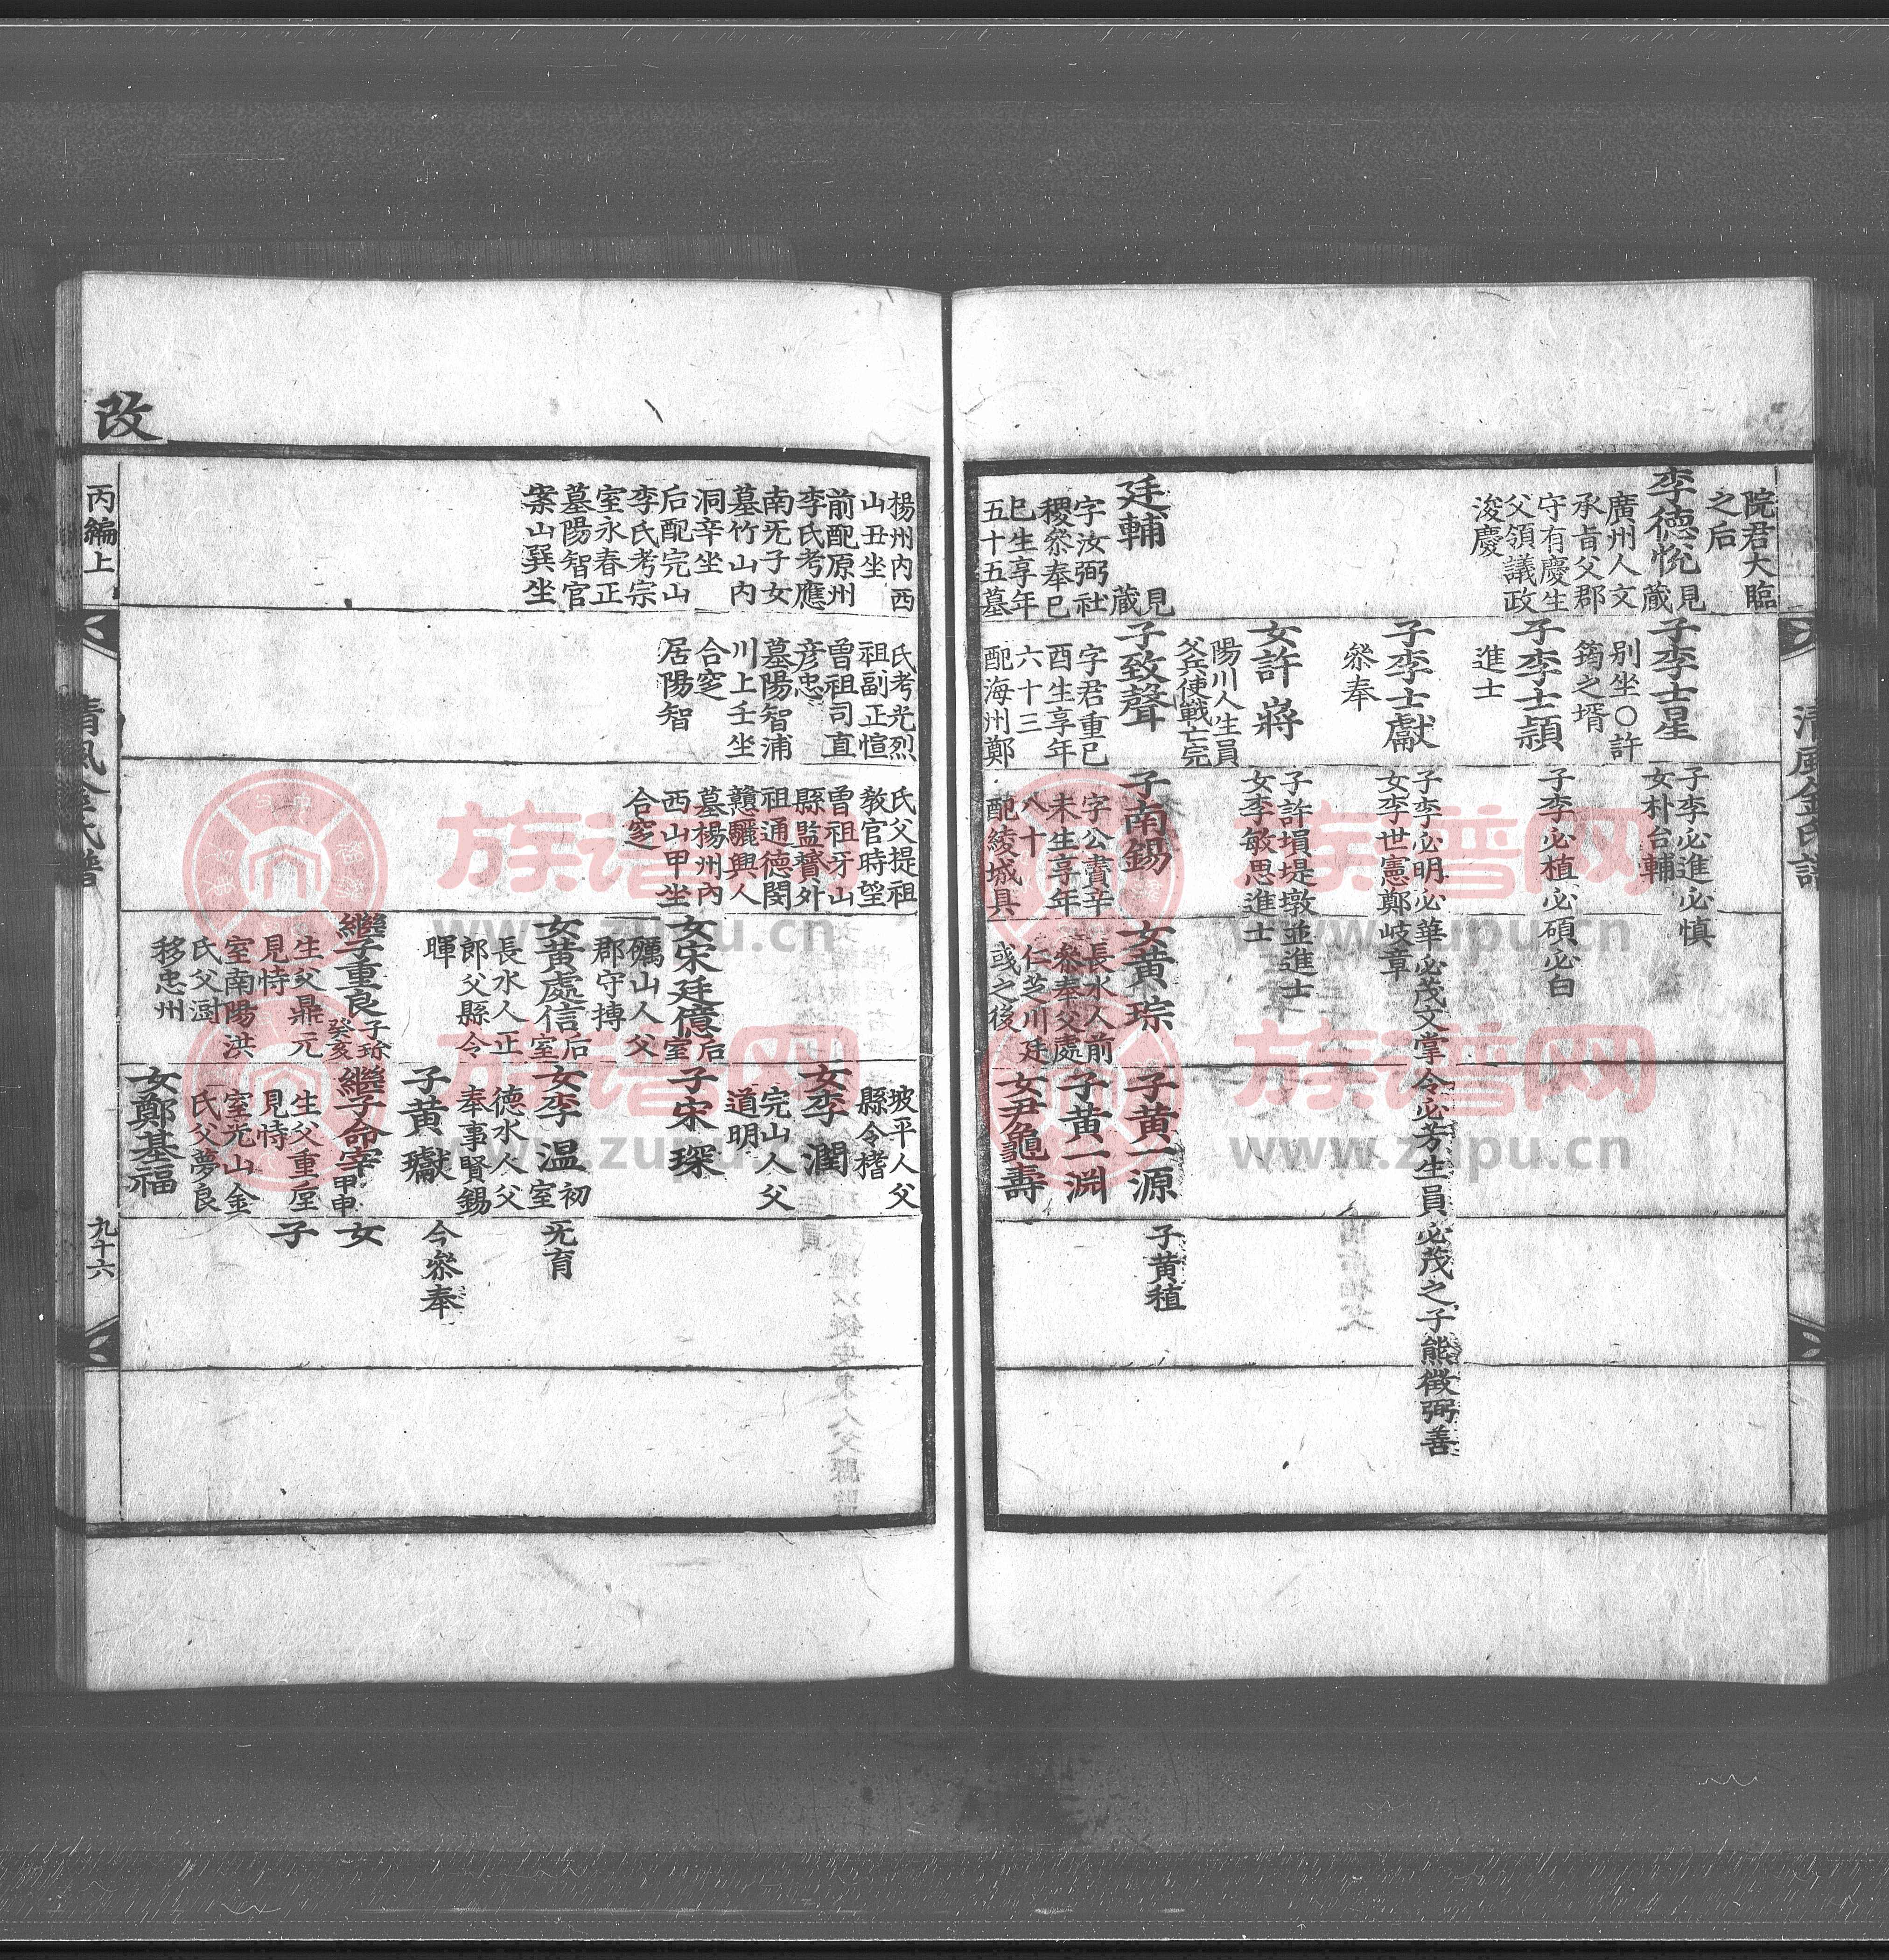 院君大臨
之后
李德悅
見
蔵
廣州人文
承旨父郡
守有慶生
父領議政
浚慶
廷輔
見
蔵
字汝弼社
稷叅奉己
巳生享年
五十五墓
子李士星
別坐〇許
筠之壻
子李士頴
進士
子李士獻
叅奉
女許蔣
陽川人生員
父兵使戰亡完
子致聲
字君重己
酉生享年
六十三
配海州鄭
子李必進必慎
女朴台輔
子李必植必碩必白
子李必明必華必茂文掌令必芳生員必茂之子熊徵弼善
女李世憲鄭岐章
子許塤堤墩並進士
女李敏思進士
子南錫
字公賚辛
未生享年
八十
配綾城具
女黃琮
長水人前
叅奉父處
仁芝川廷
彧之後
子黃一源
子黃一淵
女尹龜壽
子黃稙
清風金氏譜
楊州內西
山丑坐
前配原州
李氏考應
南旡子女
墓竹山內
洞辛坐
后配完山
李氏考宗
室永春正
墓陽智官
案山巽坐
氏考光烈
祖副正愃
曽祖司直
彦忠
墓陽智浦
川上壬坐
合窆
居陽智
氏父提祖
敎官時望
曽祖牙山
縣監贇外
祖通德閔
驥興人
墓楊州內
西山甲坐
合窆
女宋廷億
后
室
礪山人父
郡守摶
女黃處信
后
室
長水人正
郎父縣令
暉
繼子重良
子珎
癸亥
生父鼎元
見恃
室南陽洪
氏父澍
移忠州
坡平人父
縣令榰
女李潤
完山人父
道明
子宋琛
女李温
初
室
德水人父
奉事賢錫
子黃瓛
繼子命宰
甲申
生父重垕
見恃
室光山金
氏父夢良
女鄭基福
旡育
今叅奉
女
子
改
丙編上
清風金氏譜
九十六
族谱网
www.zupu.cn
族谱网
www.zupu.cn
族谱网
www.zupu.cn
族谱网
www.zupu.cn